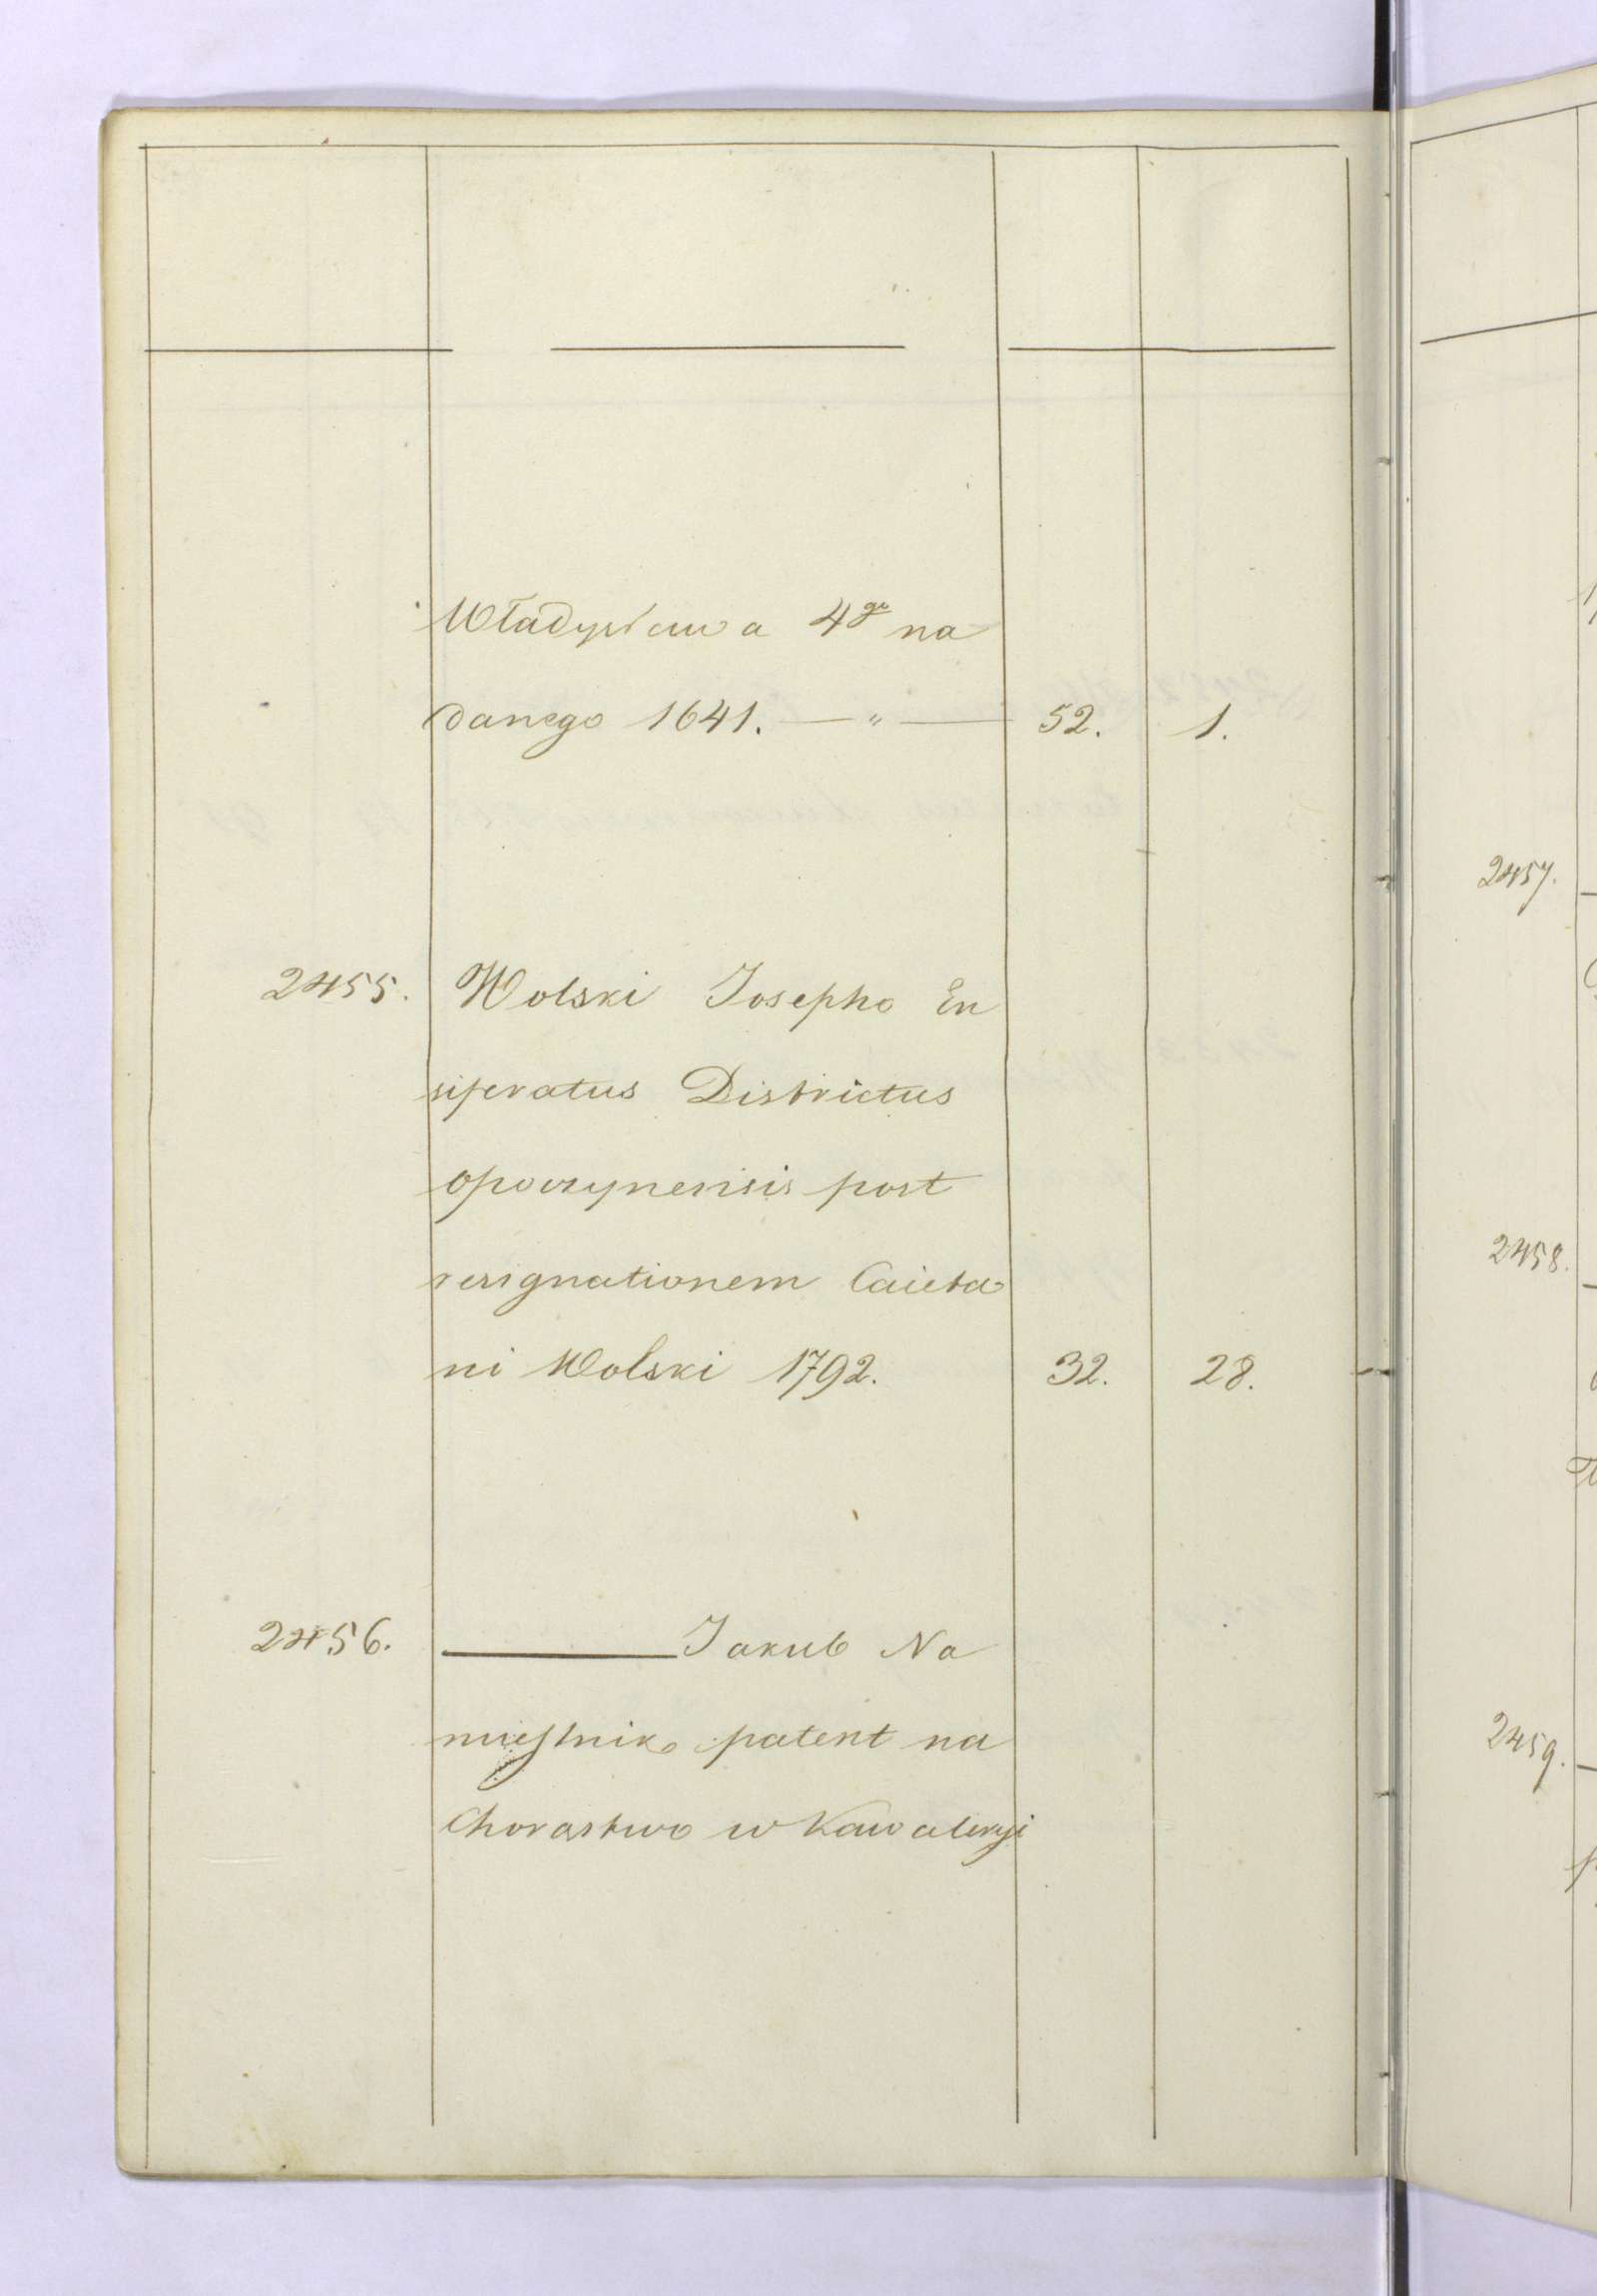 Władysława 4go na
danego 1641. — „ — 52. 1.
2455. Wolski Josepho En
siferatus Districtus
opoczynensis post
resignationem Caieta
ni Wolski 1792. 32. 28.
2456. ——— Jakub Na
miestnik patent na
Chorastwo w Kawaleryi
2457.
2458.
2459.